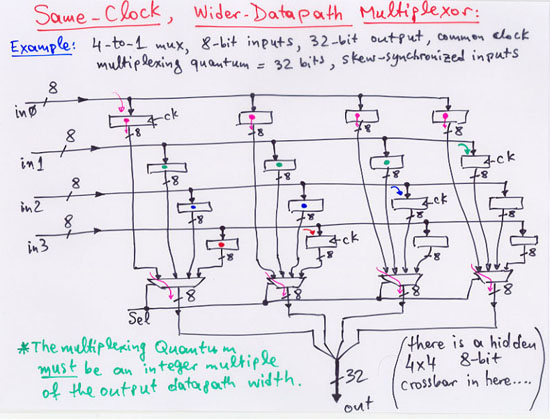 Same-Clock, Wider-Datapath Multiplexor:
Example: 4-to-1 mux, 8-bit inputs, 32-bit output, common clock
multiplexing quantum = 32 bits, skew-synchronized inputs
8
in0
ck
8 8 8 8
8
in1
ck
8 8 8 8
8
in2
ck
8 8 8 8
8
in3
ck
8 8 8 8
8 8 8 8
Sel
*The multiplexing Quantum
must be an integer multiple
of the output datapath width.
32
out
(there is a hidden
4x4 8-bit
crossbar in here....)